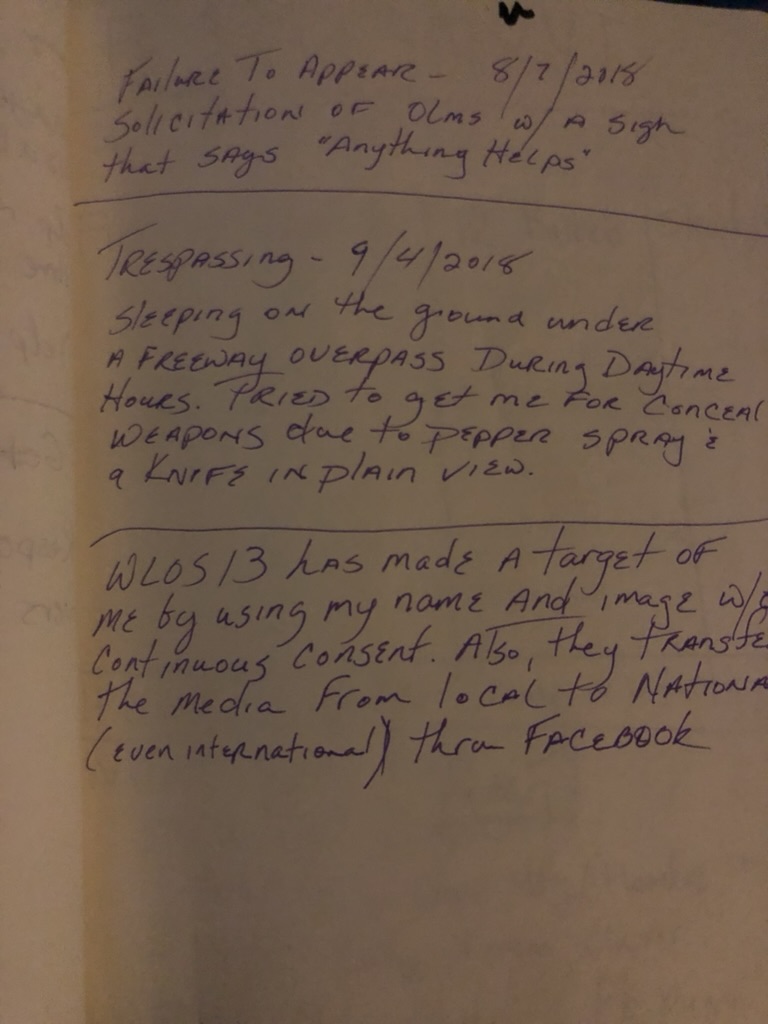 Failure To Appear - 8/7/2018
Solicitation of Olms w/ A Sign
that says "Anything Helps"
Trespassing - 9/4/2018
Sleeping on the ground under
A Freeway overpass During Daytime
Hours. Tried to get me for Conceal
Weapons due to pepper spray &
a Knife in plain view.
WLOS 13 has made A target of
me by using my name And image
Continuous Consent. Also, they
the media from local to
(even international) thru Facebook